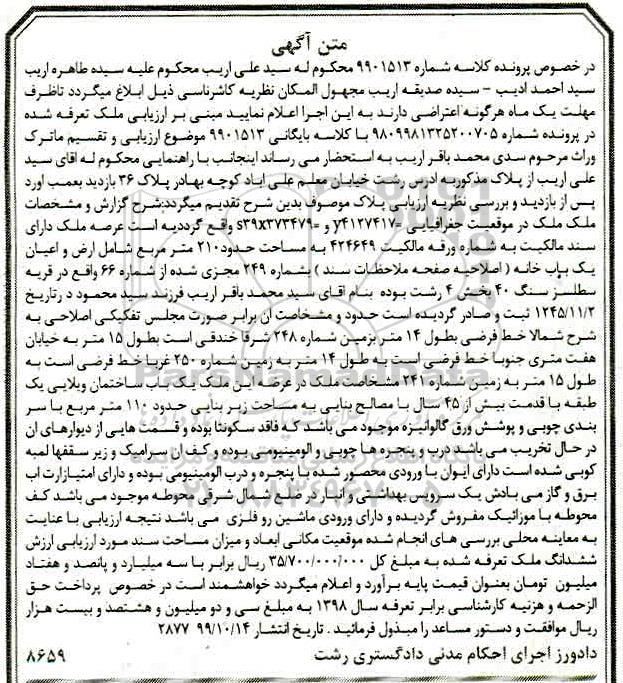 متن آگهی
در خصوص پرونده کلاسه شماره ۹۹۰۱۵۱۳ محکوم له سید علی اریب محکوم علیه سیده طاهره اریب
سید احمد ادیب – سیده صدیقه اریب مجهول المکان نظریه کاشرناسی ذیل ابلاغ میگردد تاظرف
مهلت یک ماه هرگونه اعتراضی دارند به این اجرا اعلام نمایید مبنی بر ارزیابی ملک تعرفه شده
در پرونده شماره ۹۸۰۹۹۸۱۳۲۵۲۰۰۷۰۵ با کلاسه بایگانی ۹۹۰۱۵۱۳ موضوع ارزیابی و تقسیم ماترک
وراث مرحوم سدی محمد باقر اریب به استحضار می رساند اینجانب با راهنمایی محکوم له اقای سید
علی اریب از پلاک مذکوربه ادرس رشت خیابان معلم علی اباد کوچه بهادر پلاک ۳۶ بازدید بعمب اورد
پس از بازدید و بررسی نظریه ارزیابی پلاک موصوف بدین شرح تقدیم میگردد:شرح گزارش و مشخصات
ملک ملک در موقعیت جغرافیایی =y۴۱۲۷۴۱۷ و =s۳۹x۳۷۳۴۷۹ واقع گرددیه است عرصه ملک دارای
سند مالکیت به شماره ورقه مالکیت ۴۲۴۶۴۹ به مساحت حدود۲۱۰ متر مربع شامل ارض و اعیان
یک باب خانه ( اصلاحیه صفحه ملاحظات سند ) بشماره ۲۴۹ مجزی شده از شماره ۶۶ واقع در قریه
سطلسز سنگ ۴۰ بخش ۴ رشت بوده بنام اقای سید محمد باقر اریب فرزند سید محمود د رتاریخ
۱۲۴۵/۱۱/۲ ثبت و صادر گردیده است حدود و مشخصات ان برابر صورت مجلس تفکیکی اصلاحی به
شرح شمالا خط فرضی بطول ۱۴ متر بزمین شماره ۲۴۸ شرقا خندقی است بطول ۱۵ متر به خیابان
هفت متری جنوبا خط فرضی است به طول ۱۴ متر به زمین شماره ۲۵۰ غربا خط فرضی است به
طول ۱۵ متر به زمین شماره ۲۴۱ مشخاصت ملک در عرصه این ملک یک باب ساختمان ویلایی یک
طبقه با قدمت بیش از ۴۵ سال با مصالح بنایی به مساحت زیر بنایی حدود ۱۱۰ متر مربع با سر
بندی چوبی و پوشش ورق گالوانیزه موجود می باشد که فاقد سکونتا بوده و قسمت هایی از دیوارهای ان
در حال تخریب می باشد درب و پنجره ها چوبی و الومینیومی بوده و کف ان سرامیک و زیر سقفها لمبه
کوبی شده است دارای ایوان با ورودی محصور شده با پنجره و درب الومینیومی بوده و دارای امتیازارت اب
برق و گاز می بادش یک سرویس بهداشتی و انبار در ضلع شمال شرقی محوطه موجود می باشد کف
محوطه با موزائیک مفروش گردیده و دارای ورودی ماشین رو فلزی می باشد نتیجه ارزیابی با عنایت
به معاینه محلی بررسی های انجام شده موقعیت مکانی ابعاد و میزان مساحت سند مورد ارزیابی ارزش
ششدانگ ملک تعرفه شده به مبلغ کل ۳۵/۷۰۰/۰۰۰/۰۰۰ ریال برابر با سه میلیارد و پانصد و هفتاد
میلیون تومان بعنوان قیمت پایه برآورد و اعلام میگردد خواهشمند است در خصوص پرداخت حق
الزحمه و هزینه کارشناسی برابر تعرفه سال ۱۳۹۸ به مبلغ سی و دو میلیون و هشتصد و بیست هزار
ریال موافقت و دستور مساعد را مبذول فرمائید . تاریخ انتشار ۹۹/۱۰/۱۴ ۲۸۷۷
دادورز اجرای احکام مدنی دادگستری رشت ۸۶۵۹
ParsNamadData